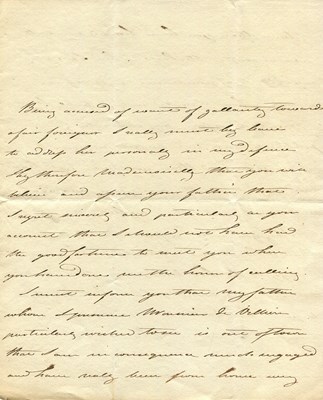 Being accused of want of gallantry towards
a fair foreigner I really must beg leave
to address her personally in my defence
I beg therefore Mademoiselle that you will
believe and assure your father that
I regret sincerely and particularly on your
account that I should not have had
the good fortune to meet you when
you have done me the honor of calling
I must inform you that my father
whom I presume Monsieur de
particularly wished to see is out of town
that I am in consequence much engaged
and have really been from home very